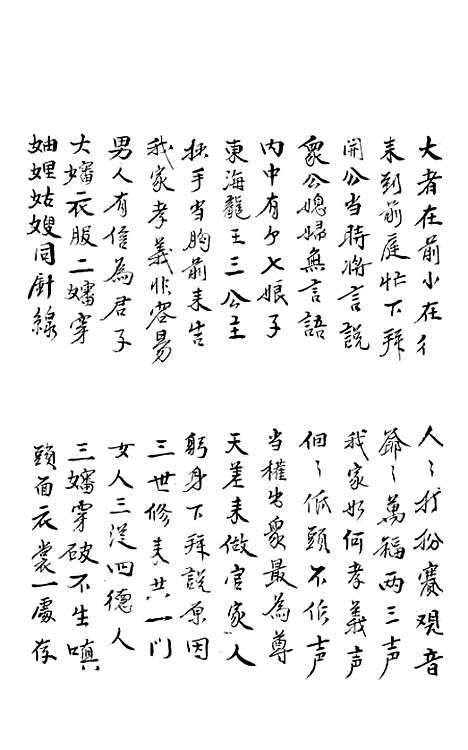 大者在前小在後　人〻打扮賽观音
来到前庭忙下拜　爺〻萬福两三声
開公当時將言說　我家如何孝義声
衆公媳婦無言語　個〻低頭不作声
内中有个七娘子　当權出衆最為尊
東海龍王三公主　天差来做官家人
扶手当胸前来告　躬身下拜說原因
我家孝義非容易　三世修来共一门
男人有信為君子　女人三従四德人
大嬸衣服二嬸穿　三嬸穿破不生嗔
妯娌姑嫂同針線　頭面衣裳一處存